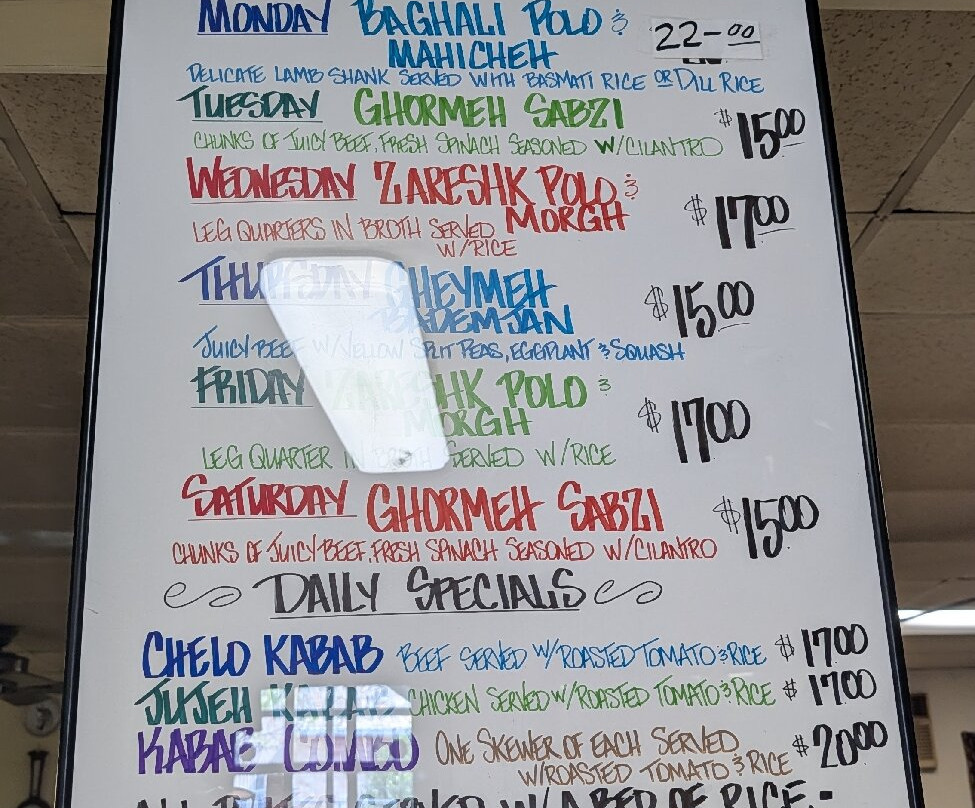 MONDAY BAGHALI POLO & 22-00
MAHICHEH
DELICATE LAMB SHANK SERVED WITH BASMATI RICE OR DILL RICE
TUESDAY GHORMEH SABZI $1500
CHUNKS OF JUICY BEEF, FRESH SPINACH SEASONED W/CILANTRO
WEDNESDAY ZARESHK POLO & $1700
MORGH
LEG QUARTERS IN BROTH SERVED
W/RICE
THURSDAY GHEYMEH $1500
BADEMJAN
JUICY BEEF W/YELLOW SPLIT PEAS, EGGPLANT & SQUASH
FRIDAY ZARESHK POLO & $1700
MORGH
LEG QUARTER IN BROTH SERVED W/RICE
SATURDAY GHORMEH SABZI $1500
CHUNKS OF JUICY BEEF, FRESH SPINACH SEASONED W/CILANTRO
DAILY SPECIALS
CHELO KABAB BEEF SERVED W/ROASTED TOMATO & RICE $1700
JUJEH KABAB CHICKEN SERVED W/ROASTED TOMATO & RICE $1700
KABAB COMBO ONE SKEWER OF EACH SERVED $2000
W/ROASTED TOMATO & RICE
W/A BED OF RICE